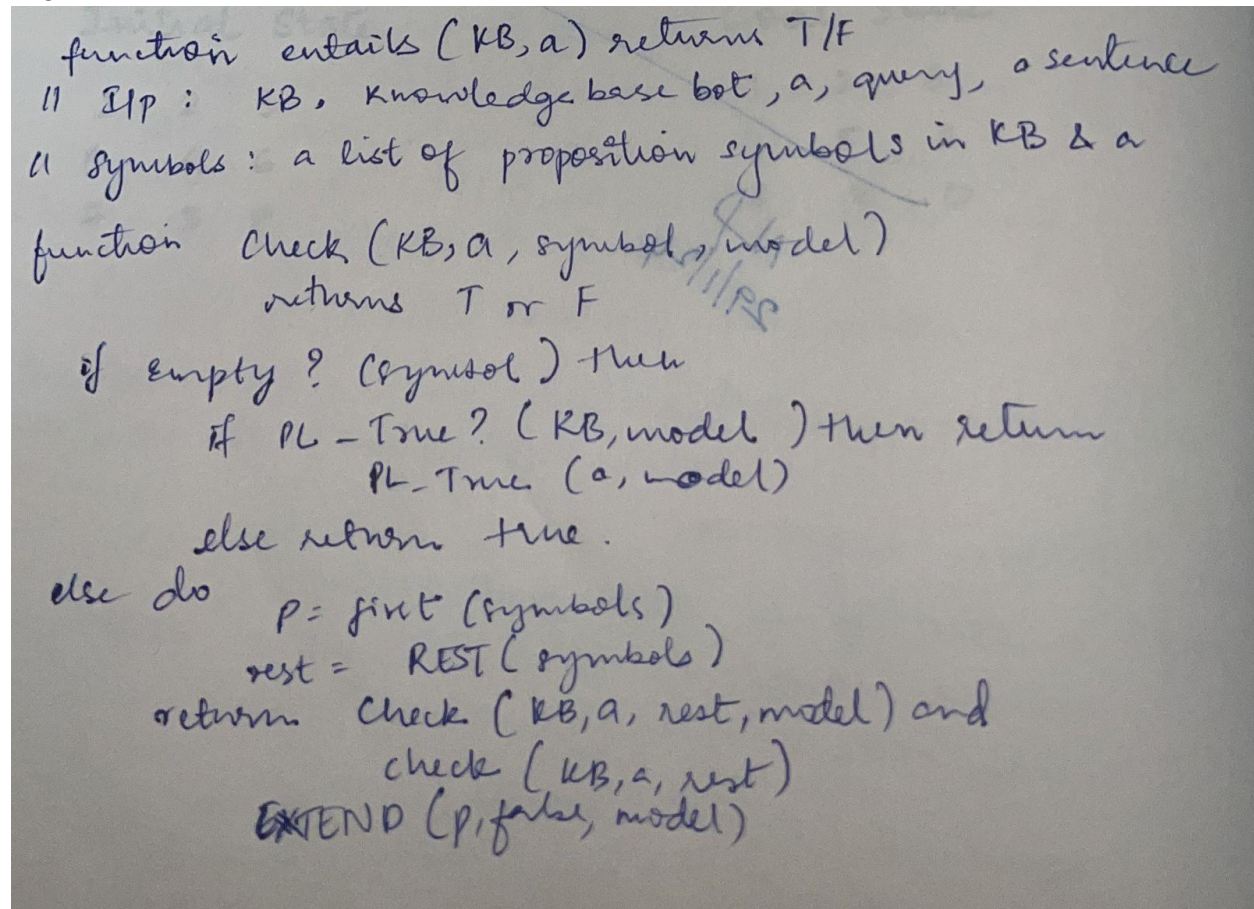 function entails (KB, a) returns T/F
// I/p : KB, Knowledge base bot, a, query, a sentence
// Symbols : a list of proposition symbols in KB & a
function Check (KB, a, symbol, model)
returns T or F
if Empty ? (symbol) then
if PL - True ? (KB, model) then return
PL_True (a, model)
else return true.
else do
P = first (symbols)
rest = REST (symbols)
return Check (KB, a, rest, model) and
check (KB, a, rest)
EXTEND (p, false, model)